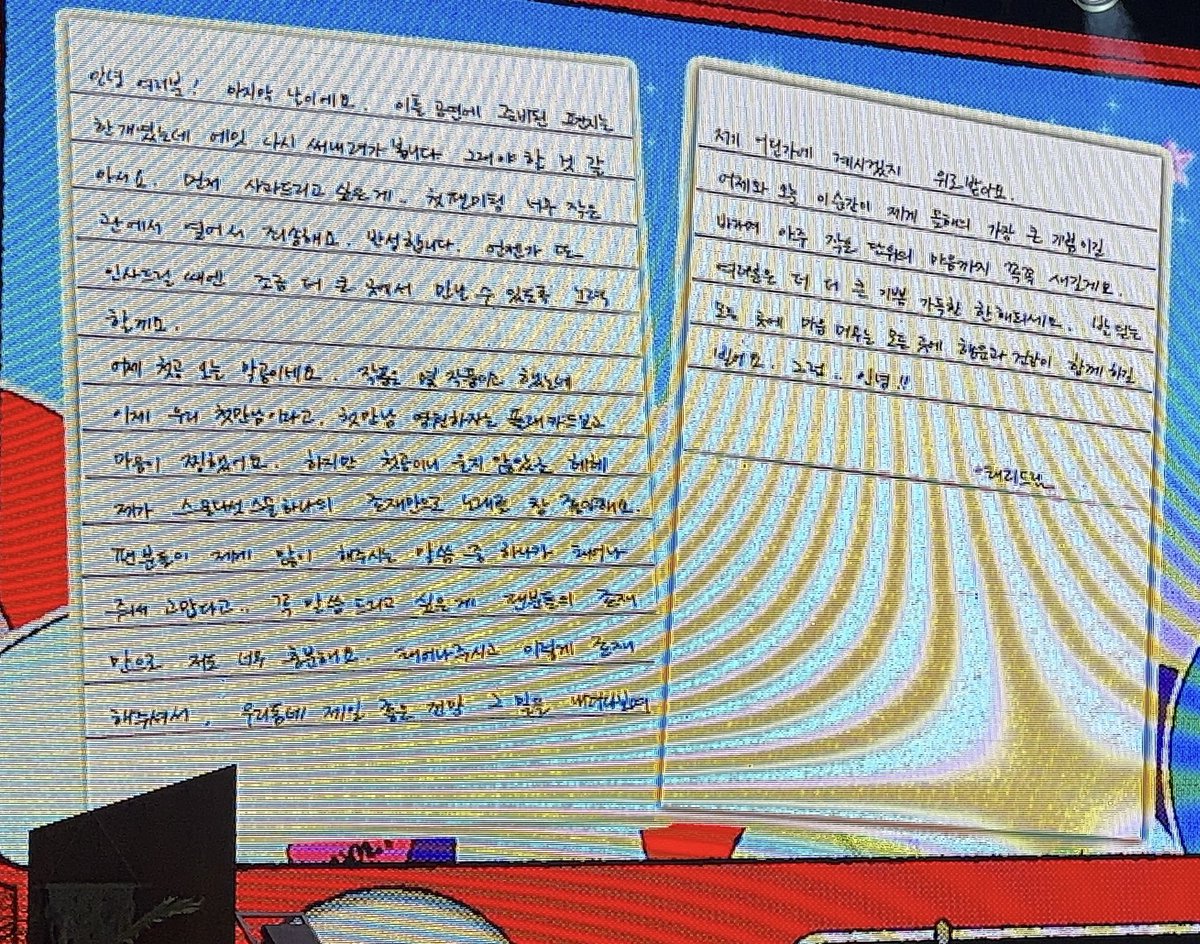 안녕 여러분! 마지막 날이에요. 이틀 공연에 준비된 편지는
한개였는데 에잇 다시 써내려가 봅니다 그래야 할 것 같
아서요. 먼저 사과드리고 싶은게. 첫팬미팅 너무 작은
관에서 열어서 죄송해요. 반성합니다. 언젠가 또
인사드릴 때엔 조금 더 큰 곳에서 만날 수 있도록 노력
할게요.
어제 첫공 오늘 막공이네요. 작품은 몇 작품이고 했는데
이제 우리 첫만남이라고. 첫만남 영원하자는 플래카드보고
마음이 찡했어요. 하지만 첫공이니 울지 않았는 헤헤
제가 스물다섯 스물하나의 존재만으로 노래를 참 좋아해요.
팬분들이 제게 많이 해주시는 말씀 중 하나가 태어나
줘서 고맙다고.. 꼭 말씀 드리고 싶은 게 팬분들의 존재
만으로 저도 너무 충분해요. 태어나주시고 이렇게 존재
해주셔서, 우리동네 제일 좋은 전망 그 밑을 내려다보며
저기 어딘가에 계시겠지 위로받아요.
어제와 오늘 이순간이 제게 올해의 가장 큰 기쁨이길
바라며 아주 작은 단위의 마음까지 꼭꼭 새길게요.
여러분은 더 더 큰 기쁨 가득한 한해되세요. 발 딛는
모든 곳에 마음 머무는 모든 곳에 행운과 건강이 함께 하길
빌어요. 그럼.. 안녕!!
태리드림